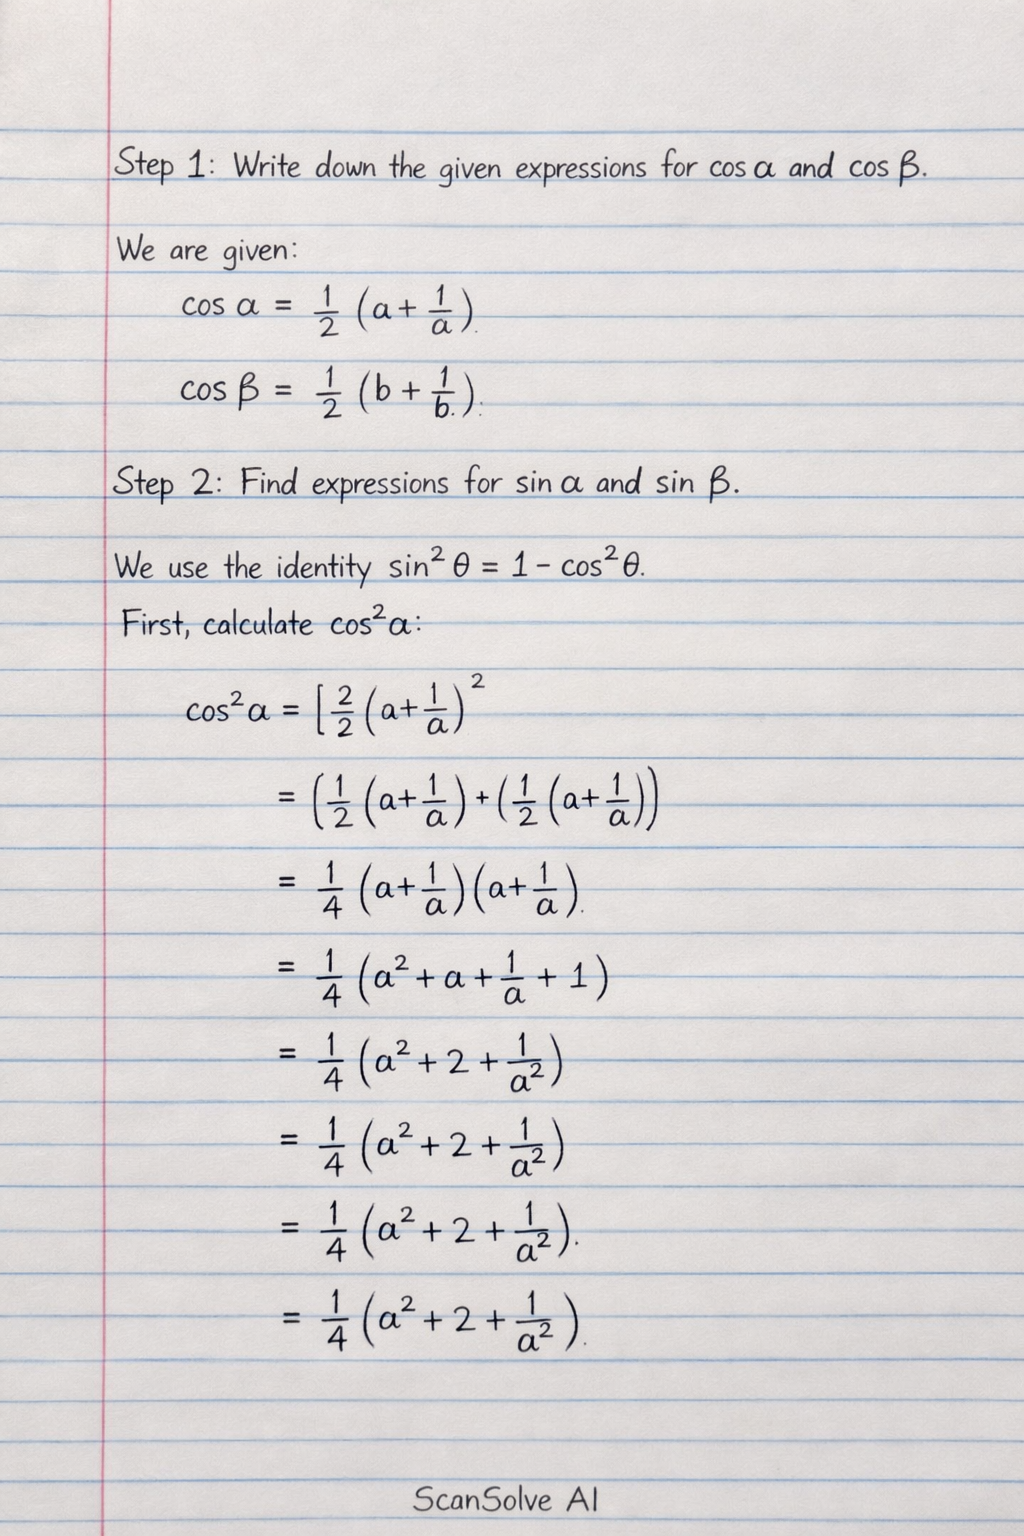 Step 1: Write down the given expressions for cos α and cos β.
We are given:
cos α = 1/2 (a + 1/a).
cos β = 1/2 (b + 1/b.).:
Step 2: Find expressions for sin α and sin β.
We use the identity sin² θ = 1 - cos² θ.
First, calculate cos² α:
cos² α = [2/2 (a + 1/a)²
= (1/2 (a + 1/a) + (1/2 (a + 1/a)))
= 1/4 (a + 1/a)(a + 1/a).
= 1/4 (a² + a + 1/a + 1)
= 1/4 (a² + 2 + 1/a²)
= 1/4 (a² + 2 + 1/a²)
= 1/4 (a² + 2 + 1/a²).
= 1/4 (a² + 2 + 1/a²).
ScanSolve AI